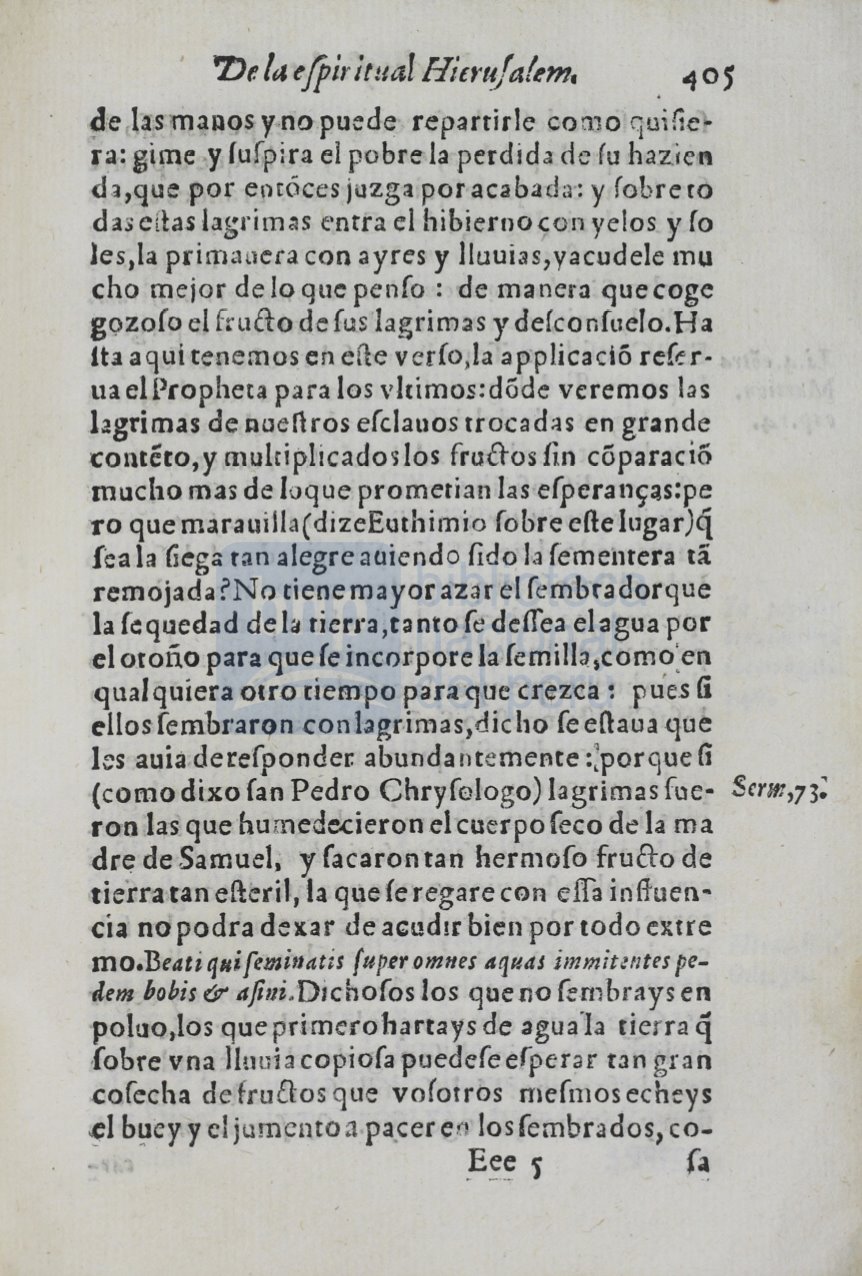 De la eſpiritual Hieruſalem. 405
de las manos y no puede repartirle como quiſie-
ra: gime y ſuſpira el pobre la perdida de ſu hazien
da, que por entōces juzga por acabada: y ſobre to
das eſtas lagrimas entra el hibierno con yelos y ſo
les, la primauera con ayres y lluuias, y acudele mu
cho mejor de lo que penſo : de manera que coge
gozoſo el fructo de ſus lagrimas y deſconſuelo. Ha
ſta aqui tenemos en eſte verſo, la applicaciō reſer-
ua el Propheta para los vltimos: dōde veremos las
lagrimas de nueſtros eſclauos trocadas en grande
contēto, y multiplicados los fructos ſin cōparaciō
mucho mas de loque prometian las eſperanças: pe
ro que marauilla (dize Euthimio ſobre eſte lugar) q̃
ſea la ſiega tan alegre auiendo ſido la ſementera tā
remojada? No tiene mayor azar el ſembrador que
la ſequedad de la tierra, tanto ſe deſſea el agua por
el otoño para que ſe incorpore la ſemilla, como en
qualquiera otro tiempo para que crezca : pues ſi
ellos ſembraron con lagrimas, dicho ſe eſtaua que
les auia de reſponder abundantemente : porque ſi
(como dixo ſan Pedro Chryſologo) lagrimas fue-
Serm, 73.
ron las que humedecieron el cuerpo ſeco de la ma
dre de Samuel, y ſacaron tan hermoſo fructo de
tierra tan eſteril, la que ſe regare con eſſa influen-
cia no podra dexar de acudir bien por todo extre
mo. Beati qui ſeminatis ſuper omnes aquas immitentes pe-
dem bobis & aſini. Dichoſos los que no ſembrays en
poluo, los que primero hartays de agua la tierra q̃
ſobre vna lluuia copioſa puedeſe eſperar tan gran
coſecha de fructos que voſotros meſmos echeys
el buey y el jumento a pacer en los ſembrados, co-
Eee 5 ſa